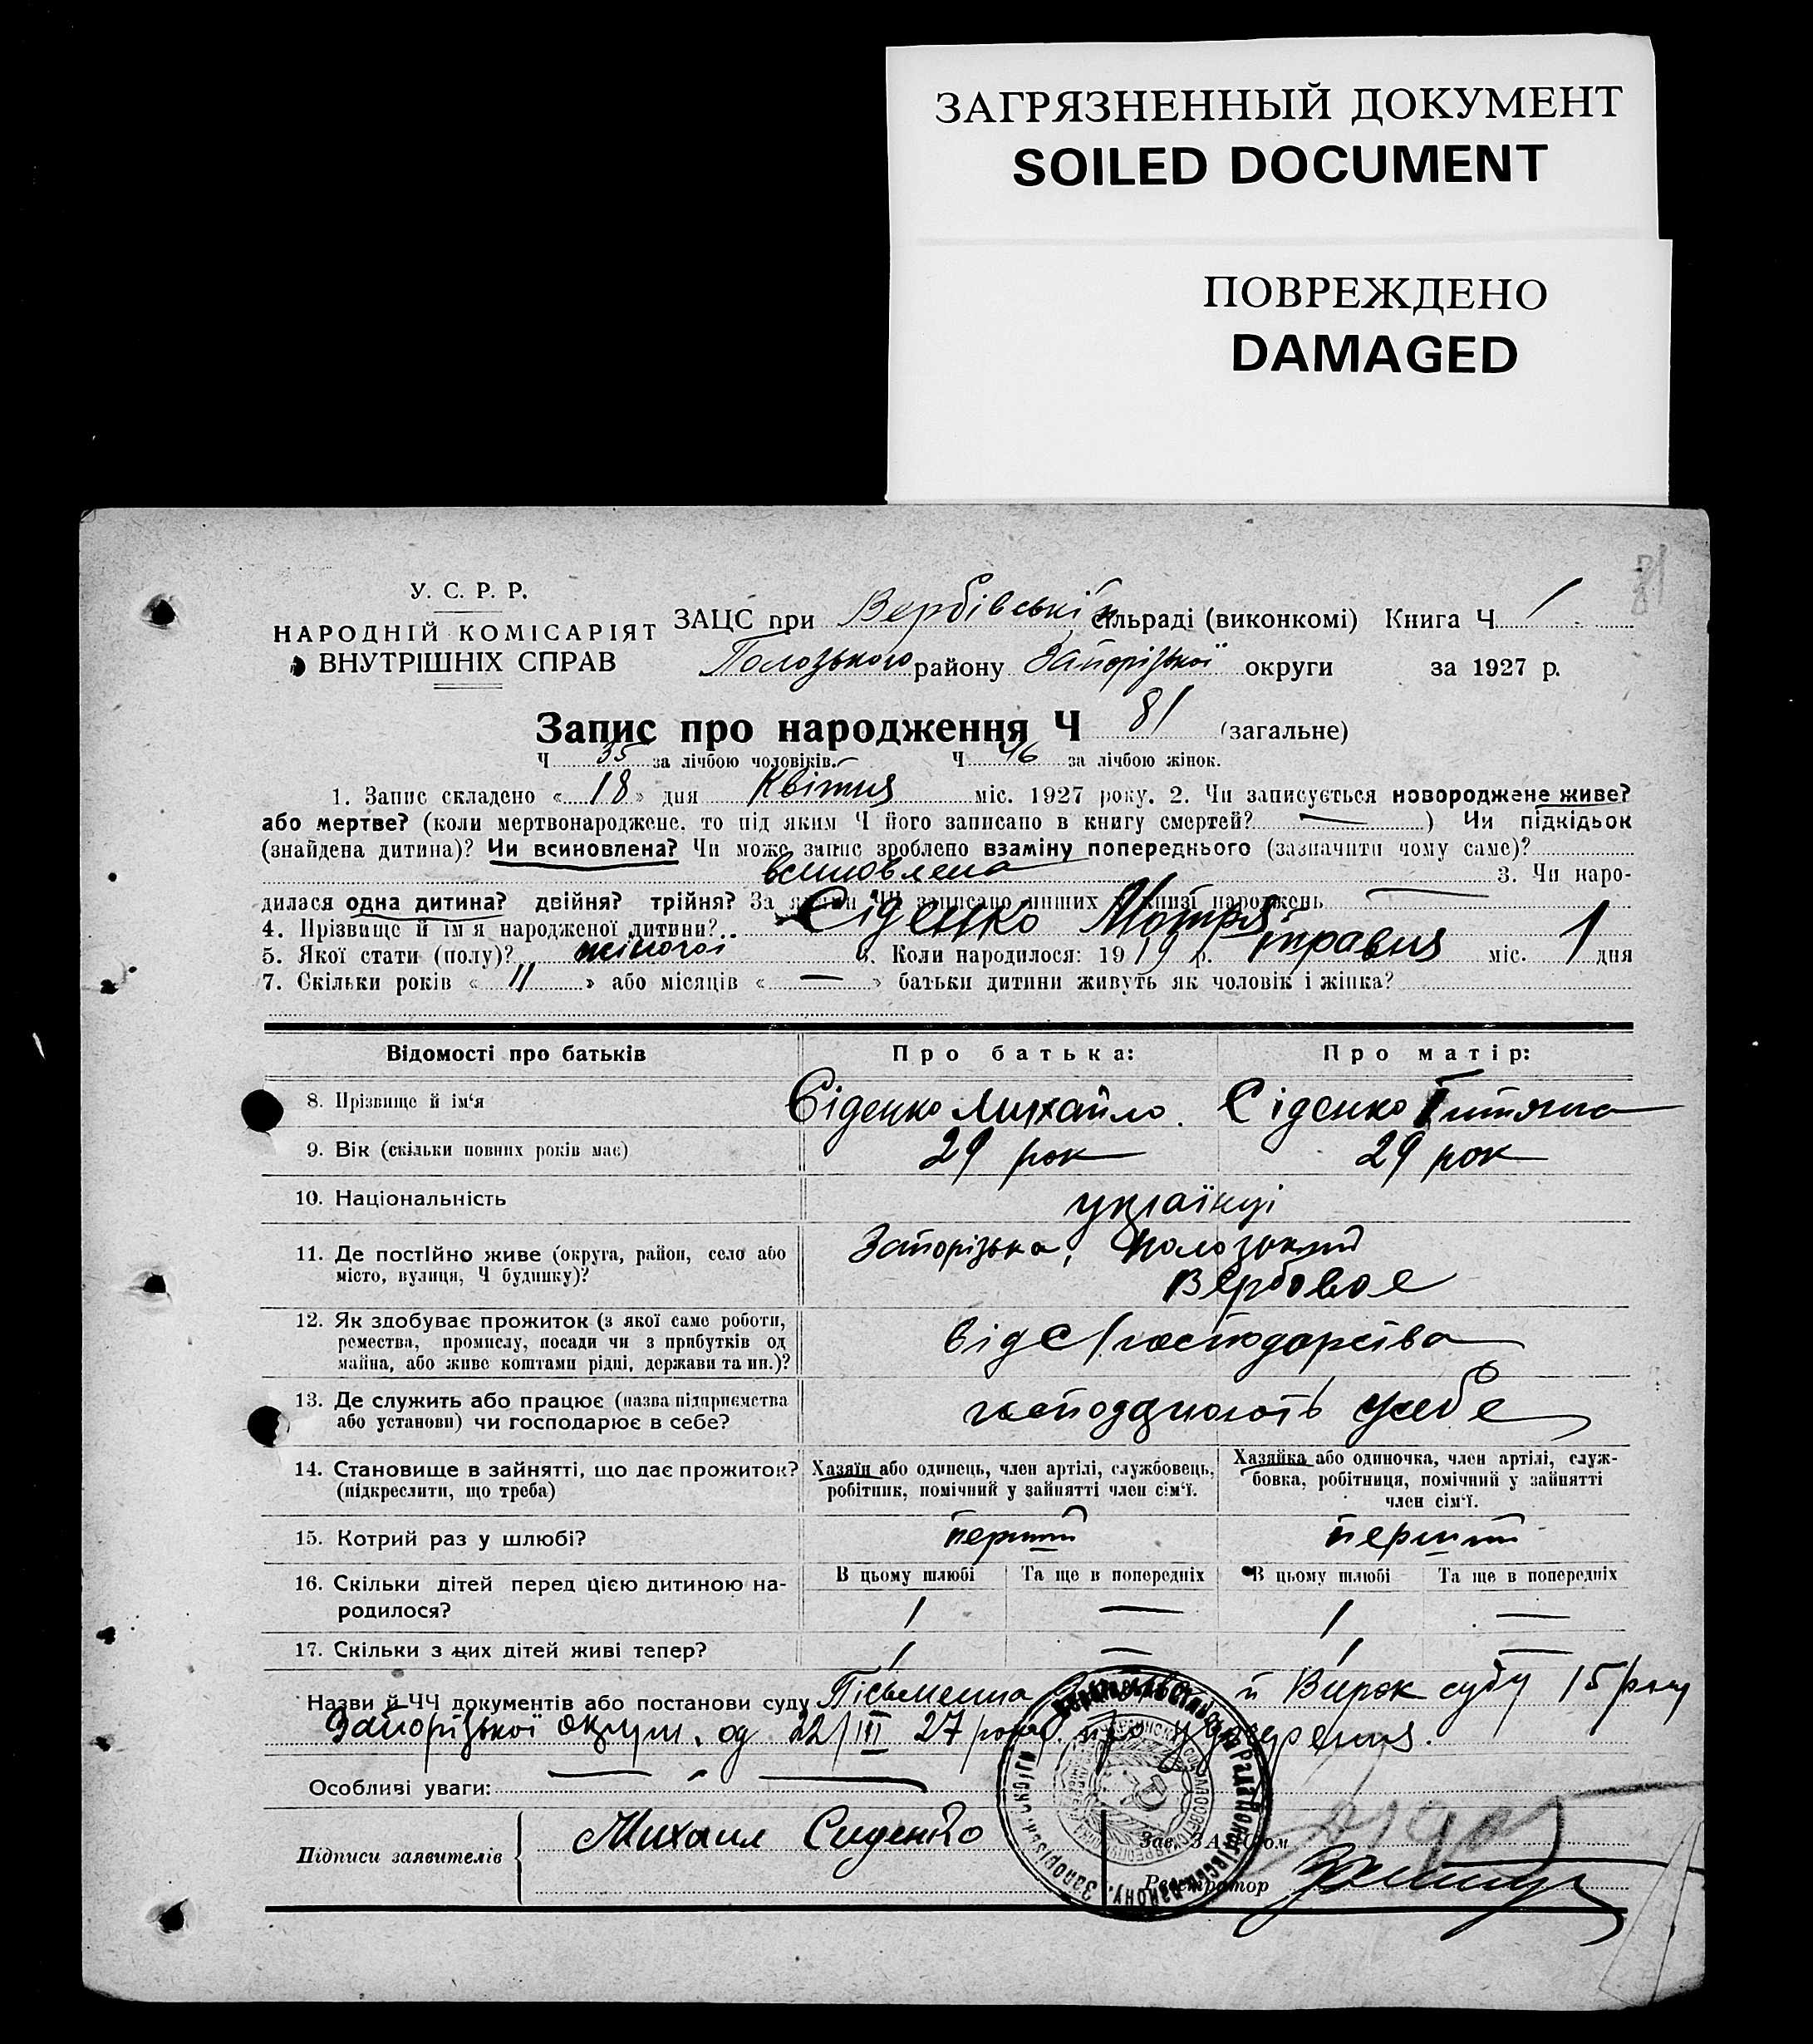 ЗАГРЯЗНЕННЫЙ ДОКУМЕНТ
SOILED DOCUMENT
ПОВРЕЖДЕНО
DAMAGED
81
У. С. Р. Р.
НАРОДНІЙ КОМІСАРІЯТ
ВНУТРІШНІХ СПРАВ
ЗАЦС при Вербівській сільраді (виконкомі) Книга Ч 1
Полозького району Запорізької округи за 1927 р.
Запис про народження Ч 81 (загальне)
Ч 35 за лічбою чоловіків. Ч 46 за лічбою жінок.
1. Запис складено « 18 » дня Квітня міс. 1927 року. 2. Чи записується новороджене живе?
або мертве? (коли мертвонароджене, то під яким Ч його записано в книгу смертей? — ) Чи підкідьок
(знайдена дитина)? Чи всиновлена? Чи може запис зроблено взаміну попереднього (зазначити чому саме)?
всиновлена 3. Чи наро-
дилася одна дитина? двійня? трійня? За якими ЧЧ записано инших у книзі народжень —
4. Прізвище й ім'я народженої дитини? Сіденко Мотря
5. Якої стати (полу)? жіночої 6. Коли народилося: 1919 р. травня міс. 1 дня
7. Скільки років « 11 » або місяців « — » батьки дитини живуть як чоловік і жінка?
Відомості про батьків Про батька: Про матір:
8. Прізвище й ім'я Сіденко Михайло. Сіденко Титяна
9. Вік (скільки повних років має) 29 рок 29 рок
10. Національність українці
11. Де постійно живе (округа, район, село або Запорізька, Полозький
місто, вулиця, Ч будинку)? Вербовое
12. Як здобуває прожиток (з якої саме роботи,
ремества, промислу, посади чи з прибутків од від С/господарства
майна, або живе коштами рідні, держави та ин.)?
13. Де служить або працює (назва підприємства
або установи) чи господарює в себе? у себе
14. Становище в зайнятті, що дає прожиток? Хазяїн або одинець, член артілі, службовець, Хазяйка або одиночка, член артілі, служ-
(підкреслити, що треба) робітник, помічний у зайнятті член сім'ї. бовка, робітниця, помічний у зайнятті
член сім'ї.
15. Котрий раз у шлюбі? перший перший
16. Скільки дітей перед цією дитиною на- В цьому шлюбі Та ще в попередніх В цьому шлюбі Та ще в попередніх
родилося? 1 — 1 —
17. Скільки з цих дітей живі тепер? 1 — 1 —
Назви й ЧЧ документів або постанови суду Пісьменна й Вирок суду 15/
Запорізької округи. од 22/III 27 року
Особливі уваги:
Підписи заявителів Михаил Сиденко
Зав. ЗАЦСом
Реєстратор